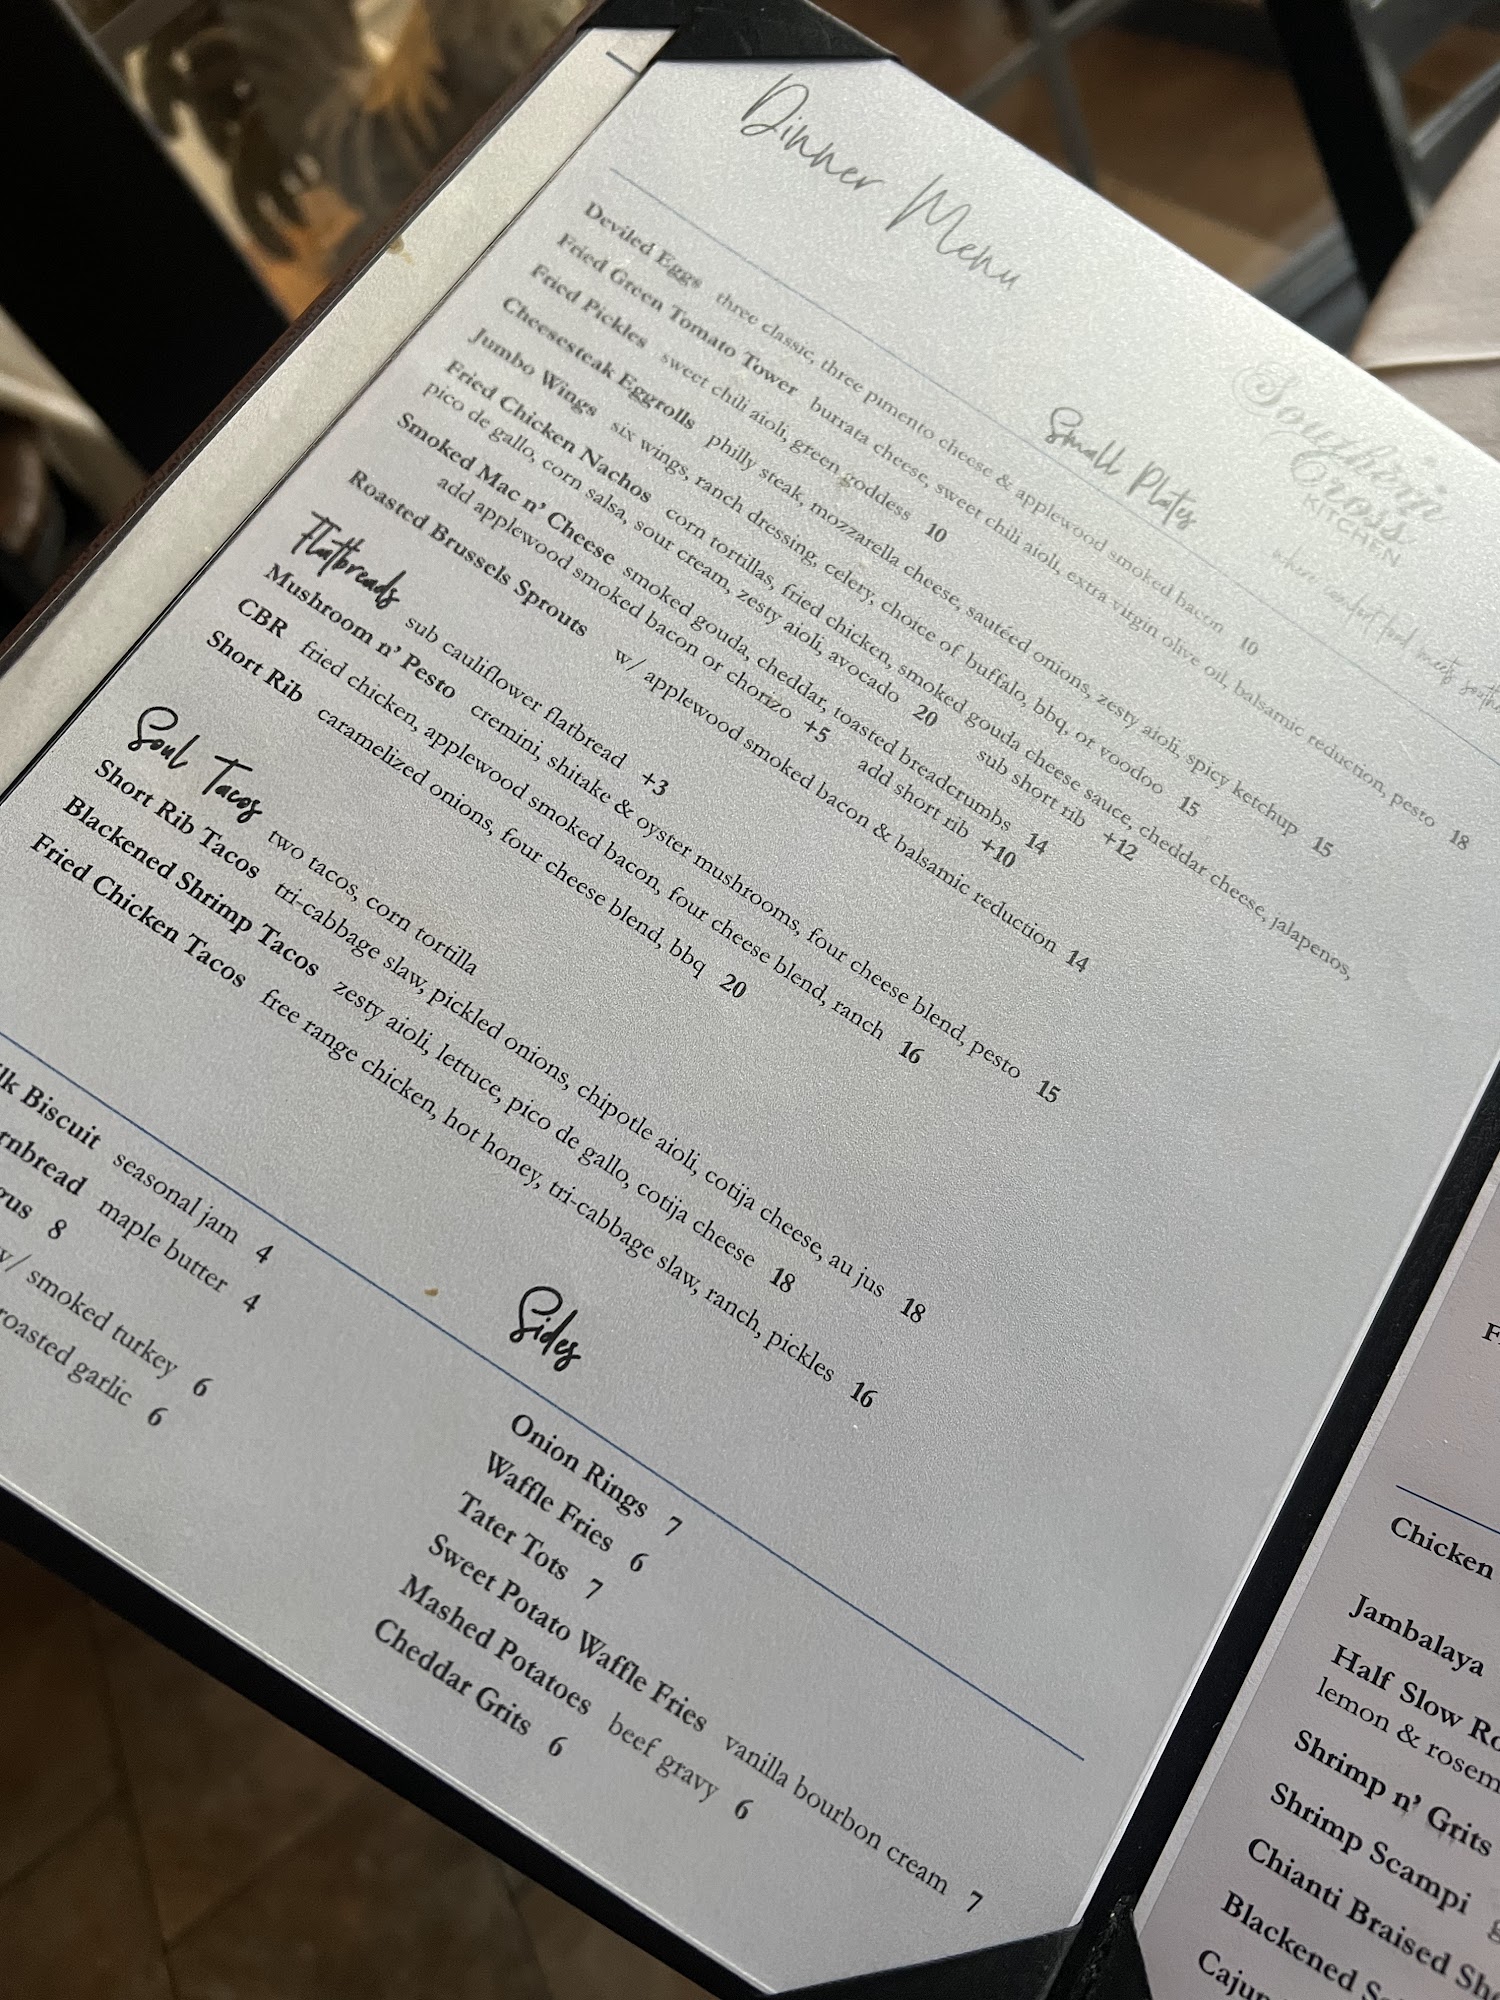 Dinner Menu
Southern
Cross
KITCHEN
where comfort food meets
Small Plates
Deviled Eggs three classic, three pimento cheese & applewood smoked bacon 10
Fried Green Tomato Tower burrata cheese, sweet chili aioli, extra virgin olive oil, balsamic reduction, pesto 18
Fried Pickles sweet chili aioli, green goddess 10
Cheesesteak Eggrolls philly steak, mozzarella cheese, sautéed onions, zesty aioli, spicy ketchup 15
Jumbo Wings six wings, ranch dressing, celery, choice of buffalo, bbq, or voodoo 15
Fried Chicken Nachos corn tortillas, fried chicken, smoked gouda cheese sauce, cheddar cheese, jalapenos,
pico de gallo, corn salsa, sour cream, zesty aioli, avocado 20 sub short rib +12
Smoked Mac n' Cheese smoked gouda, cheddar, toasted breadcrumbs 14
add applewood smoked bacon or chorizo +5 add short rib +10
Roasted Brussels Sprouts w/ applewood smoked bacon & balsamic reduction 14
Flatbreads sub cauliflower flatbread +3
Mushroom n' Pesto cremini, shitake & oyster mushrooms, four cheese blend, pesto 15
CBR fried chicken, applewood smoked bacon, four cheese blend, ranch 16
Short Rib caramelized onions, four cheese blend, bbq 20
Soul Tacos two tacos, corn tortilla
Short Rib Tacos tri-cabbage slaw, pickled onions, chipotle aioli, cotija cheese, au jus 18
Blackened Shrimp Tacos zesty aioli, lettuce, pico de gallo, cotija cheese 18
Fried Chicken Tacos free range chicken, hot honey, tri-cabbage slaw, ranch, pickles 16
Sides
lk Biscuit seasonal jam 4
rnbread maple butter 4
gus 8
w/ smoked turkey 6
roasted garlic 6
Onion Rings 7
Waffle Fries 6
Tater Tots 7
Sweet Potato Waffle Fries vanilla bourbon cream 7
Mashed Potatoes beef gravy 6
Cheddar Grits 6
Chicken
Jambalaya
Half Slow Ro
lemon & rosem
Shrimp n' Grits
Shrimp Scampi
Chianti Braised Sho
Blackened S
Cajun